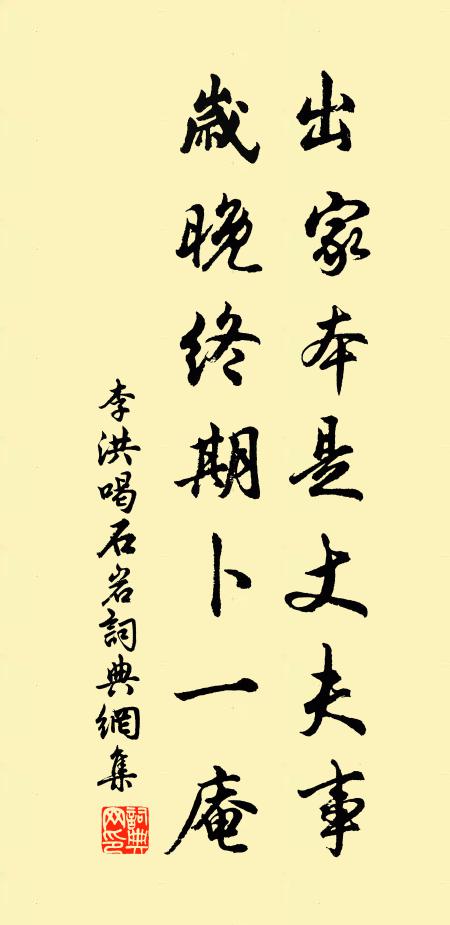 出家本是丈夫事
歲晚終期卜一庵
李洪喝石岩詞典網集
詞典网印